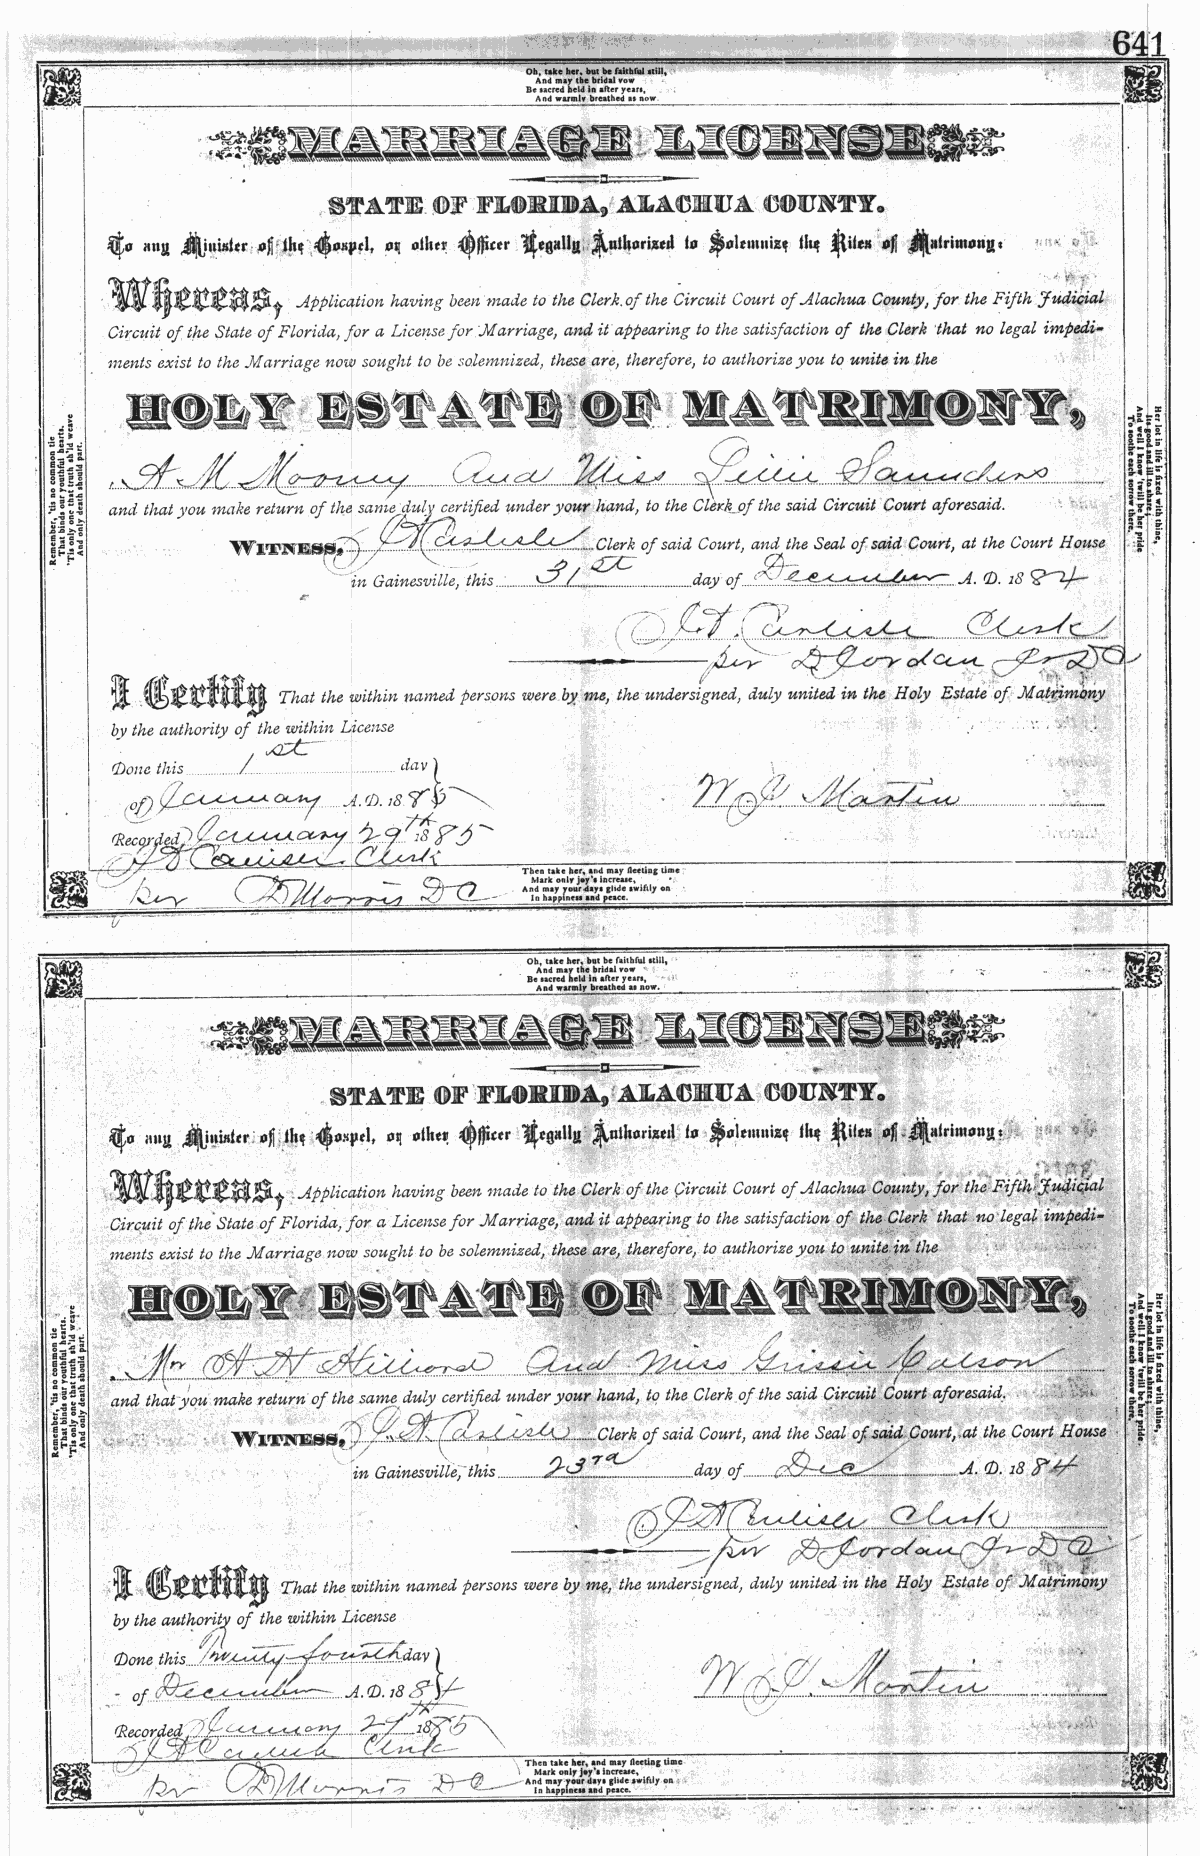 641
Oh, take her, but be faithful still,
And may the bridal vow
Be sacred held in after years,
And warmly breathed as now.
MARRIAGE LICENSE
STATE OF FLORIDA, ALACHUA COUNTY.
To any Minister of the Gospel, or other Officer Legally Authorized to Solemnize the Rites of Matrimony:
Whereas, Application having been made to the Clerk of the Circuit Court of Alachua County, for the Fifth Judicial
Circuit of the State of Florida, for a License for Marriage, and it appearing to the satisfaction of the Clerk that no legal impedi-
ments exist to the Marriage now sought to be solemnized, these are, therefore, to authorize you to unite in the
HOLY ESTATE OF MATRIMONY,
A M Mooney and Miss Lillie Saunders
and that you make return of the same duly certified under your hand, to the Clerk of the said Circuit Court aforesaid.
WITNESS, J A Carlisle Clerk of said Court, and the Seal of said Court, at the Court House
in Gainesville, this 31st day of December A. D. 1884
J. A. Carlisle Clerk
per D Jordan Jr DC
I Certify That the within named persons were by me, the undersigned, duly united in the Holy Estate of Matrimony
by the authority of the within License
Done this 1st day
of January A. D. 1885
W J Martin
Recorded January 29th 1885
J A Carlisle Clerk
per D Morris DC
Then take her, and may fleeting time
Mark only joy's increase,
And may your days glide swiftly on
In happiness and peace.
Remember, 'tis no common tie
That binds our youthful hearts.
'Tis only one that truth sh'ld weave
And only death should part.
Her lot in life is fixed with thine,
Its good and ill to share;
And well I know 'twill be her pride
To soothe each sorrow there.
Oh, take her, but be faithful still,
And may the bridal vow
Be sacred held in after years,
And warmly breathed as now.
MARRIAGE LICENSE
STATE OF FLORIDA, ALACHUA COUNTY.
To any Minister of the Gospel, or other Officer Legally Authorized to Solemnize the Rites of Matrimony:
Whereas, Application having been made to the Clerk of the Circuit Court of Alachua County, for the Fifth Judicial
Circuit of the State of Florida, for a License for Marriage, and it appearing to the satisfaction of the Clerk that no legal impedi-
ments exist to the Marriage now sought to be solemnized, these are, therefore, to authorize you to unite in the
HOLY ESTATE OF MATRIMONY,
Mr H H Hilliard and Miss Grissie Colson
and that you make return of the same duly certified under your hand, to the Clerk of the said Circuit Court aforesaid.
WITNESS, J. A. Carlisle Clerk of said Court, and the Seal of said Court, at the Court House
in Gainesville, this 23rd day of Dec A. D. 1884
J A Carlisle Clerk
per D Jordan Jr DC
I Certify That the within named persons were by me, the undersigned, duly united in the Holy Estate of Matrimony
by the authority of the within License
Done this Twenty fourth day
of December A. D. 1884
W J. Martin
Recorded January 29th 1885
J A Carlisle Clerk
per D Morris DC
Then take her, and may fleeting time
Mark only joy's increase,
And may your days glide swiftly on
In happiness and peace.
Remember, 'tis no common tie
That binds our youthful hearts.
'Tis only one that truth sh'ld weave
And only death should part.
Her lot in life is fixed with thine,
Its good and ill to share;
And well I know 'twill be her pride
To soothe each sorrow there.